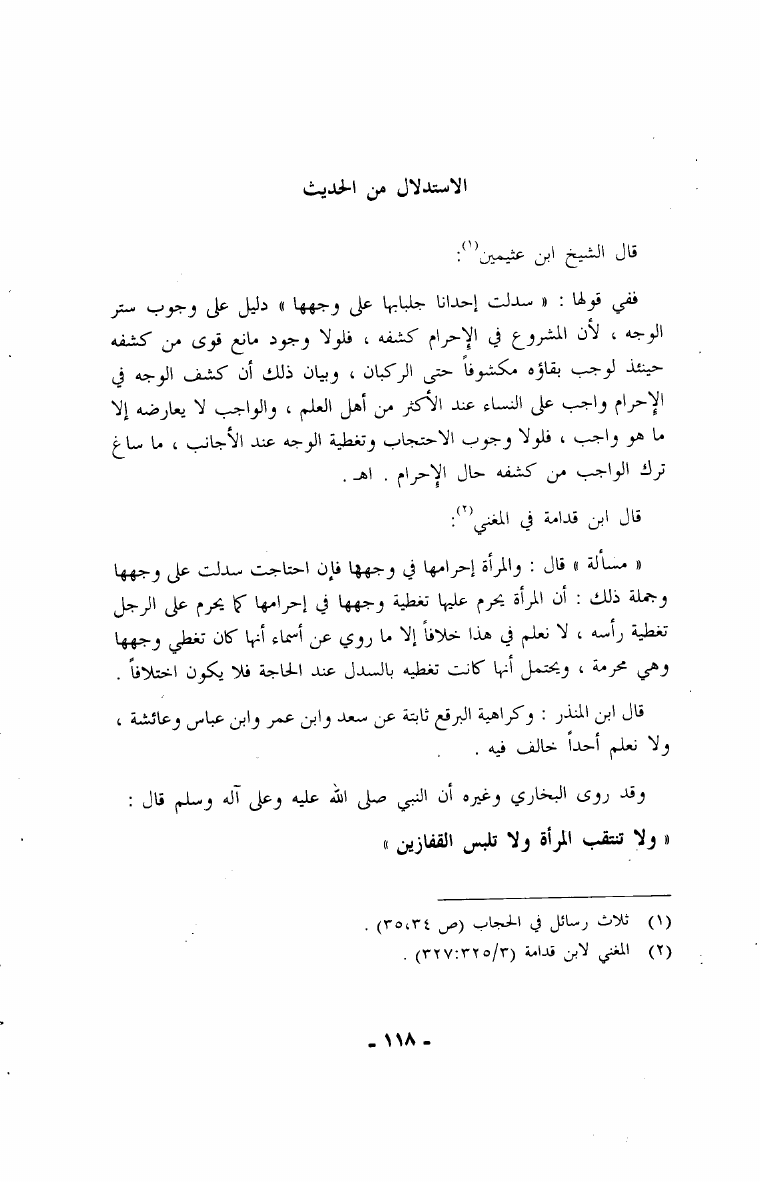 الاستدلال من الحديث
قال الشيخ ابن عثيمين(١):
ففي قولها : « سدلت إحدانا جلبابها على وجهها » دليل على وجوب ستر
الوجه ، لأن المشروع في الإحرام كشفه ، فلولا وجود مانع قوى من كشفه
حينئذ لوجب بقاؤه مكشوفاً حتى الركبان ، وبيان ذلك أن كشف الوجه في
الإحرام واجب على النساء عند الأكثر من أهل العلم ، والواجب لا يعارضه إلا
ما هو واجب ، فلولا وجوب الاحتجاب وتغطية الوجه عند الأجانب ، ما ساغ
ترك الواجب من كشفه حال الإحرام . اهـ .
قال ابن قدامة في المغني(٢):
« مسألة » قال : والمرأة إحرامها في وجهها فإن احتاجت سدلت على وجهها
وجملة ذلك : أن المرأة يحرم عليها تغطية وجهها في إحرامها كما يحرم على الرجل
تغطية رأسه ، لا نعلم في هذا خلافاً إلا ما روي عن أسماء أنها كان تغطي وجهها
وهي محرمة ، ويحتمل أنها كانت تغطيه بالسدل عند الحاجة فلا يكون اختلافاً .
قال ابن المنذر : وكراهية البرقع ثابتة عن سعد وابن عمر وابن عباس وعائشة ،
ولا نعلم أحداً خالف فيه .
وقد روى البخاري وغيره أن النبي صلى الله عليه وعلى آله وسلم قال :
« ولا تنتقب المرأة ولا تلبس القفازين »
(١) ثلاث رسائل في الحجاب (ص ٣٥،٣٤) .
(٢) المغني لابن قدامة (٣٢٧:٣٢٥/٣) .
- ١١٨ -